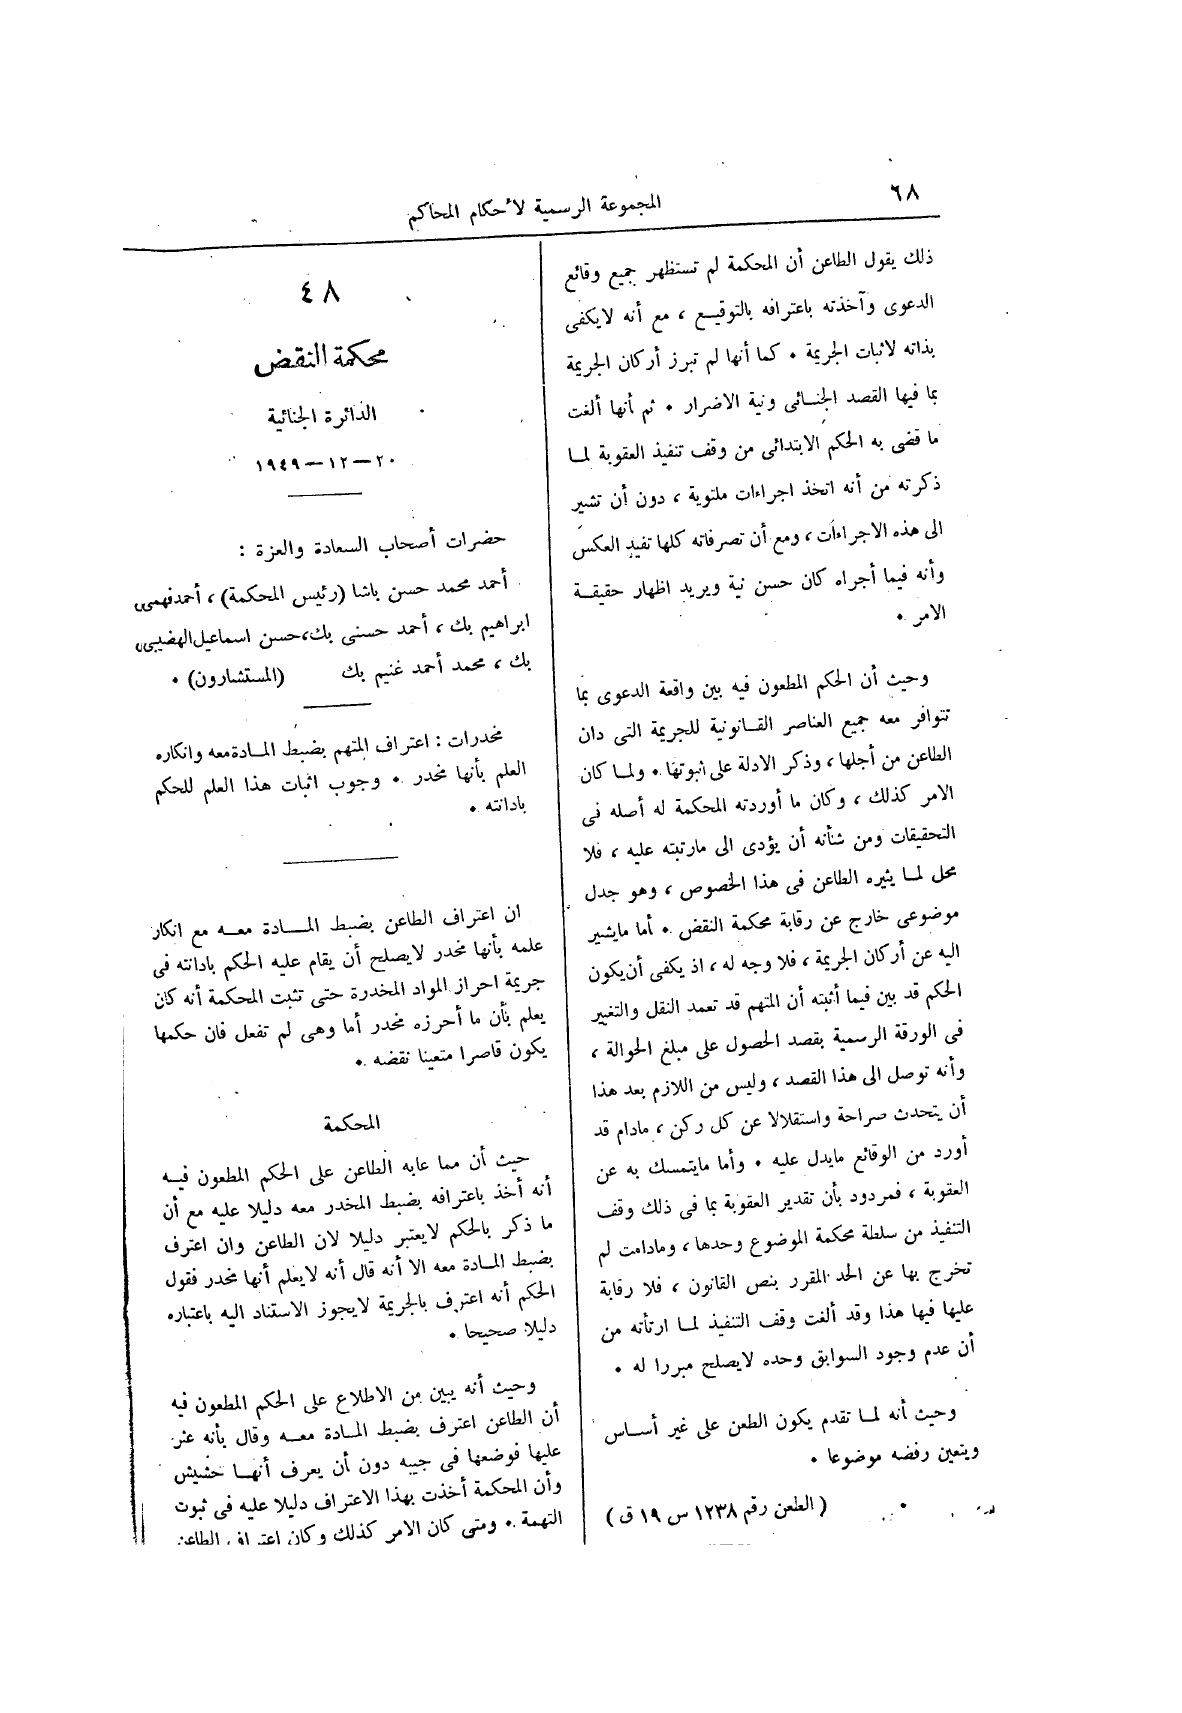 ٦٨
المجموعة الرسمية لأحكام المحاكم
ذلك يقول الطاعن أن المحكمة لم تستظهر جميع وقائع
الدعوى وآخذته باعترافه بالتوقيع ، مع أنه لايكفى
بذاته لاثبات الجريمة • كما أنها لم تبرز أركان الجريمة
بما فيها القصد الجنائى ونية الاضرار • ثم أنها ألغت
ما قضى به الحكم الابتدائى من وقف تنفيذ العقوبة لما
ذكرته من أنه اتخذ اجراءات ملتوية ، دون أن تشير
الى هذه الاجراءات ، ومع أن تصرفاته كلها تفيد العكس
وأنه فيما أجراه كان حسن نية ويريد اظهار حقيقة
الامر •
وحيث أن الحكم المطعون فيه بين واقعة الدعوى بما
تتوافر معه جميع العناصر القانونية للجريمة التى دان
الطاعن من أجلها ، وذكر الادلة على ثبوتها • ولما كان
الامر كذلك ، وكان ما أوردته المحكمة له أصله فى
التحقيقات ومن شأنه أن يؤدى الى مارتبته عليه ، فلا
محل لما يثيره الطاعن فى هذا الخصوص ، وهو جدل
موضوعى خارج عن رقابة محكمة النقض • أما مايشير
اليه عن أركان الجريمة ، فلا وجه له ، اذ يكفى أن يكون
الحكم قد بين فيما أثبته أن المتهم قد تعمد النقل والتغيير
فى الورقة الرسمية بقصد الحصول على مبلغ الحوالة ،
وأنه توصل الى هذا القصد ، وليس من اللازم بعد هذا
أن يتحدث صراحة واستقلالا عن كل ركن ، مادام قد
أورد من الوقائع مايدل عليه • وأما مايتمسك به عن
العقوبة ، فمردود بأن تقدير العقوبة بما فى ذلك وقف
التنفيذ من سلطة محكمة الموضوع وحدها ، ومادامت لم
تخرج بها عن الحد المقرر بنص القانون ، فلا رقابة
عليها فيها هذا وقد ألغت وقف التنفيذ لما ارتأته من
أن عدم وجود السوابق وحده لايصلح مبررا له •
وحيث أنه لما تقدم يكون الطعن على غير أساس
ويتعين رفضه موضوعا •
( الطعن رقم ١٢٣٨ س ١٩ ق )
٤٨
محكمة النقض
الدائرة الجنائية
٢٠—١٢—١٩٤٩
حضرات أصحاب السعادة والعزة :
أحمد محمد حسن باشا (رئيس المحكمة) ، أحمدفهمى
ابراهيم بك ، أحمد حسنى بك،حسن اسماعيل الهضيبى
بك ، محمد أحمد غنيم بك (المستشارون) •
مخدرات : اعتراف المتهم بضبط المادةمعه وانكاره
العلم بأنها مخدر • وجوب اثبات هذا العلم للحكم
بادانته •
ان اعتراف الطاعن بضبط المادة معه مع انكار
علمه بأنها مخدر لايصلح أن يقام عليه الحكم بادانته فى
جريمة احراز المواد المخدرة حتى تثبت المحكمة أنه كان
يعلم بأن ما أحرزه مخدر أما وهى لم تفعل فان حكمها
يكون قاصرا متعينا نقضه •
المحكمة
حيث أن مما عابه الطاعن على الحكم المطعون فيه
أنه أخذ باعترافه بضبط المخدر معه دليلا عليه مع أن
ما ذكر بالحكم لايعتبر دليلا لان الطاعن وان اعترف
بضبط المادة معه الا أنه قال أنه لايعلم أنها مخدر فقول
الحكم أنه اعترف بالجريمة لايجوز الاستناد اليه باعتباره
دليلا صحيحا •
وحيث أنه يبين من الاطلاع على الحكم المطعون فيه
أن الطاعن اعترف بضبط المادة معه وقال بأنه عثر
عليها فوضعها فى جيبه دون أن يعرف أنها حشيش
وأن المحكمة أخذت بهذا الاعتراف دليلا عليه فى ثبوت
التهمة • ومتى كان الامر كذلك وكان اعتراف الطاعن